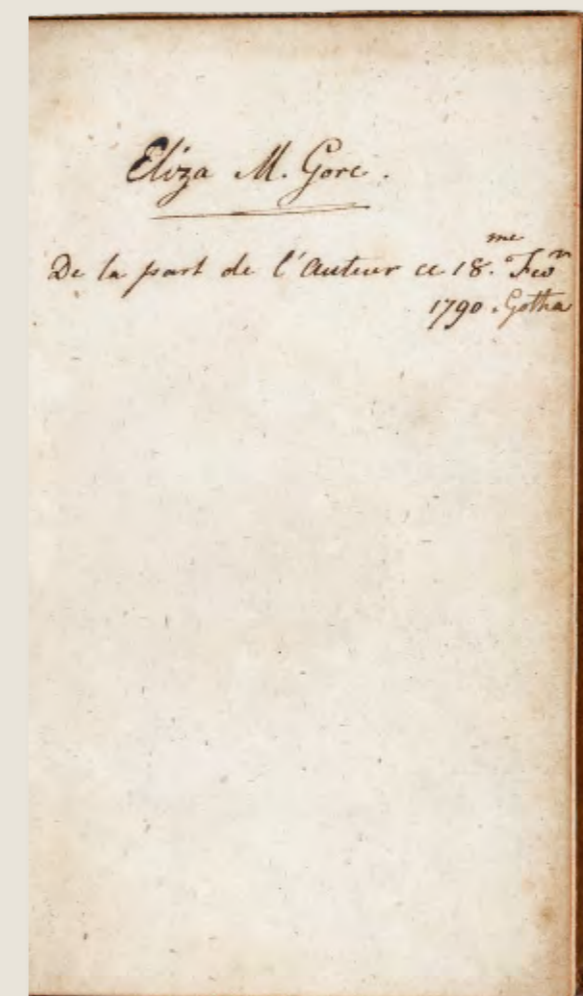 Eliza M. Gore.
De la part de l'Auteur ce 18.me Fevr
1790. Gotha